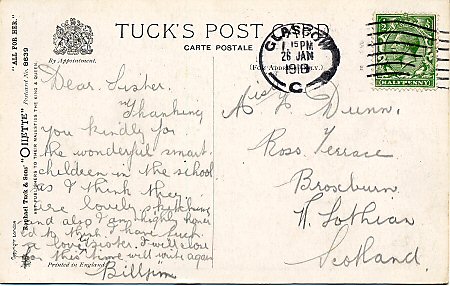 TUCK'S POST CARD
CARTE POSTALE
By Appointment.
(For Address Only.)
"ALL FOR HER."
"OILETTE" Postcard No. 8639
Raphael Tuck & Sons'
ART PUBLISHERS TO THEIR MAJESTIES THE KING & QUEEN.
GLASGOW
15 PM
26 JAN
C
HALFPENNY
Dear Sister.
Thanking
you kindly for
the wonderful smart
children in the school
as I think they
are lovely sketching
and also I am highly honor
ed to think I have been
a love sister. I will close
for this time will write again
Billjim
Printed in England
Dunn.
Ross Terrace
Broxburn
W. Lothian
Scotland.